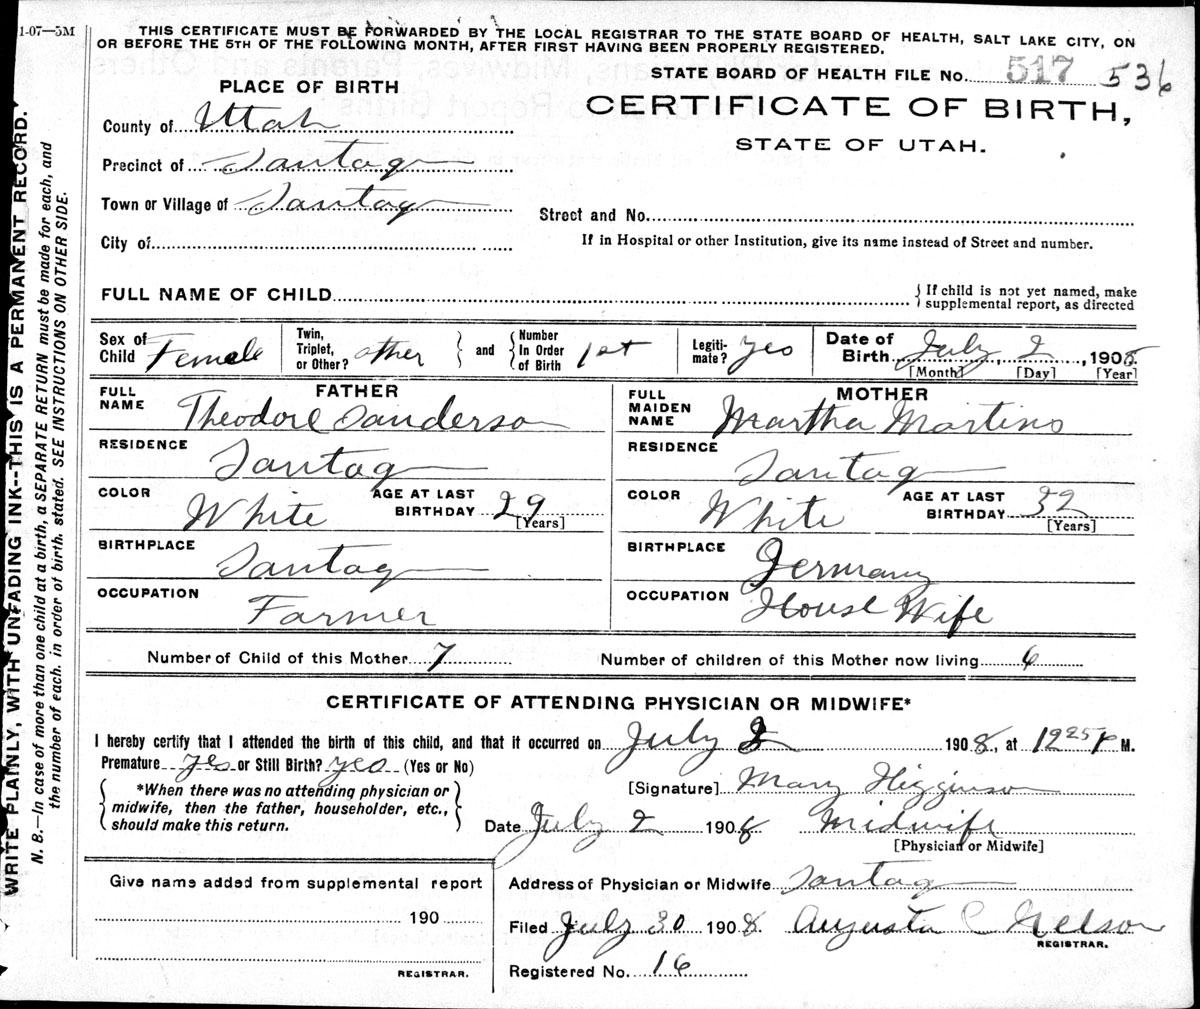 1-07—5M
THIS CERTIFICATE MUST BE FORWARDED BY THE LOCAL REGISTRAR TO THE STATE BOARD OF HEALTH, SALT LAKE CITY, ON
OR BEFORE THE 5TH OF THE FOLLOWING MONTH, AFTER FIRST HAVING BEEN PROPERLY REGISTERED.
STATE BOARD OF HEALTH FILE No. 517 536
PLACE OF BIRTH
CERTIFICATE OF BIRTH,
STATE OF UTAH.
County of Utah
Precinct of Santaq
Town or Village of Santaq
Street and No.
City of
If in Hospital or other Institution, give its name instead of Street and number.
FULL NAME OF CHILD
{ If child is not yet named, make
supplemental report, as directed
Sex of Child Female
Twin, Triplet, or Other? other } and { Number In Order of Birth 1st
Legiti- mate? yes
Date of Birth July 2, 1908
[Month] [Day] [Year]
FATHER
FULL NAME Theodore Sanderson
RESIDENCE Santaq
COLOR White AGE AT LAST BIRTHDAY 29
[Years]
BIRTHPLACE Santaq
OCCUPATION Farmer
MOTHER
FULL MAIDEN NAME Martha Martins
RESIDENCE Santaq
COLOR White AGE AT LAST BIRTHDAY 32
[Years]
BIRTHPLACE Germany
OCCUPATION House Wife
Number of Child of this Mother 7 Number of children of this Mother now living 6
CERTIFICATE OF ATTENDING PHYSICIAN OR MIDWIFE*
I hereby certify that I attended the birth of this child, and that it occurred on July 2 1908, at 12 25 P M.
Premature yes or Still Birth? yes (Yes or No)
{ *When there was no attending physician or
midwife, then the father, householder, etc.,
should make this return. }
[Signature] Mary Higginson
Date July 2 1908 Midwife
[Physician or Midwife]
Give name added from supplemental report
190
REGISTRAR.
Address of Physician or Midwife Santaq
Filed July 30 1908. Augusta C Nelson
REGISTRAR.
Registered No. 16
WRITE PLAINLY, WITH UNFADING INK--THIS IS A PERMANENT RECORD.
N. B.—In case of more than one child at a birth, a SEPARATE RETURN must be made for each, and
the number of each. in order of birth. stated. SEE INSTRUCTIONS ON OTHER SIDE.